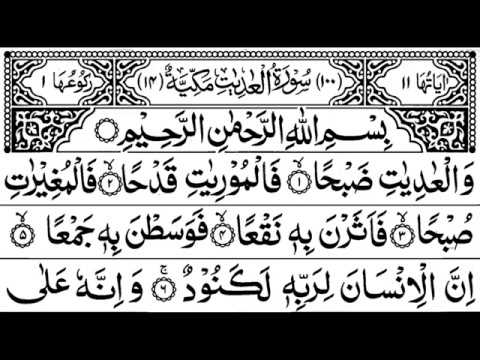 اٰیَاتُهَا ١١ (١٠٠) سُوْرَةُ الْعٰدِیٰتِ مَكِّیَّةٌ (١٤) رُكُوْعُهَا ١
بِسْمِ اللّٰهِ الرَّحْمٰنِ الرَّحِیْمِ
وَالْعٰدِیٰتِ ضَبْحًا ۙ﴿١﴾ فَالْمُوْرِیٰتِ قَدْحًا ۙ﴿٢﴾ فَالْمُغِیْرٰتِ
صُبْحًا ۙ﴿٣﴾ فَاَثَرْنَ بِهٖ نَقْعًا ۙ﴿٤﴾ فَوَسَطْنَ بِهٖ جَمْعًا ۙ﴿٥﴾
اِنَّ الْاِنْسَانَ لِرَبِّهٖ لَكَنُوْدٌ ۚ﴿٦﴾ وَاِنَّهٗ عَلٰی